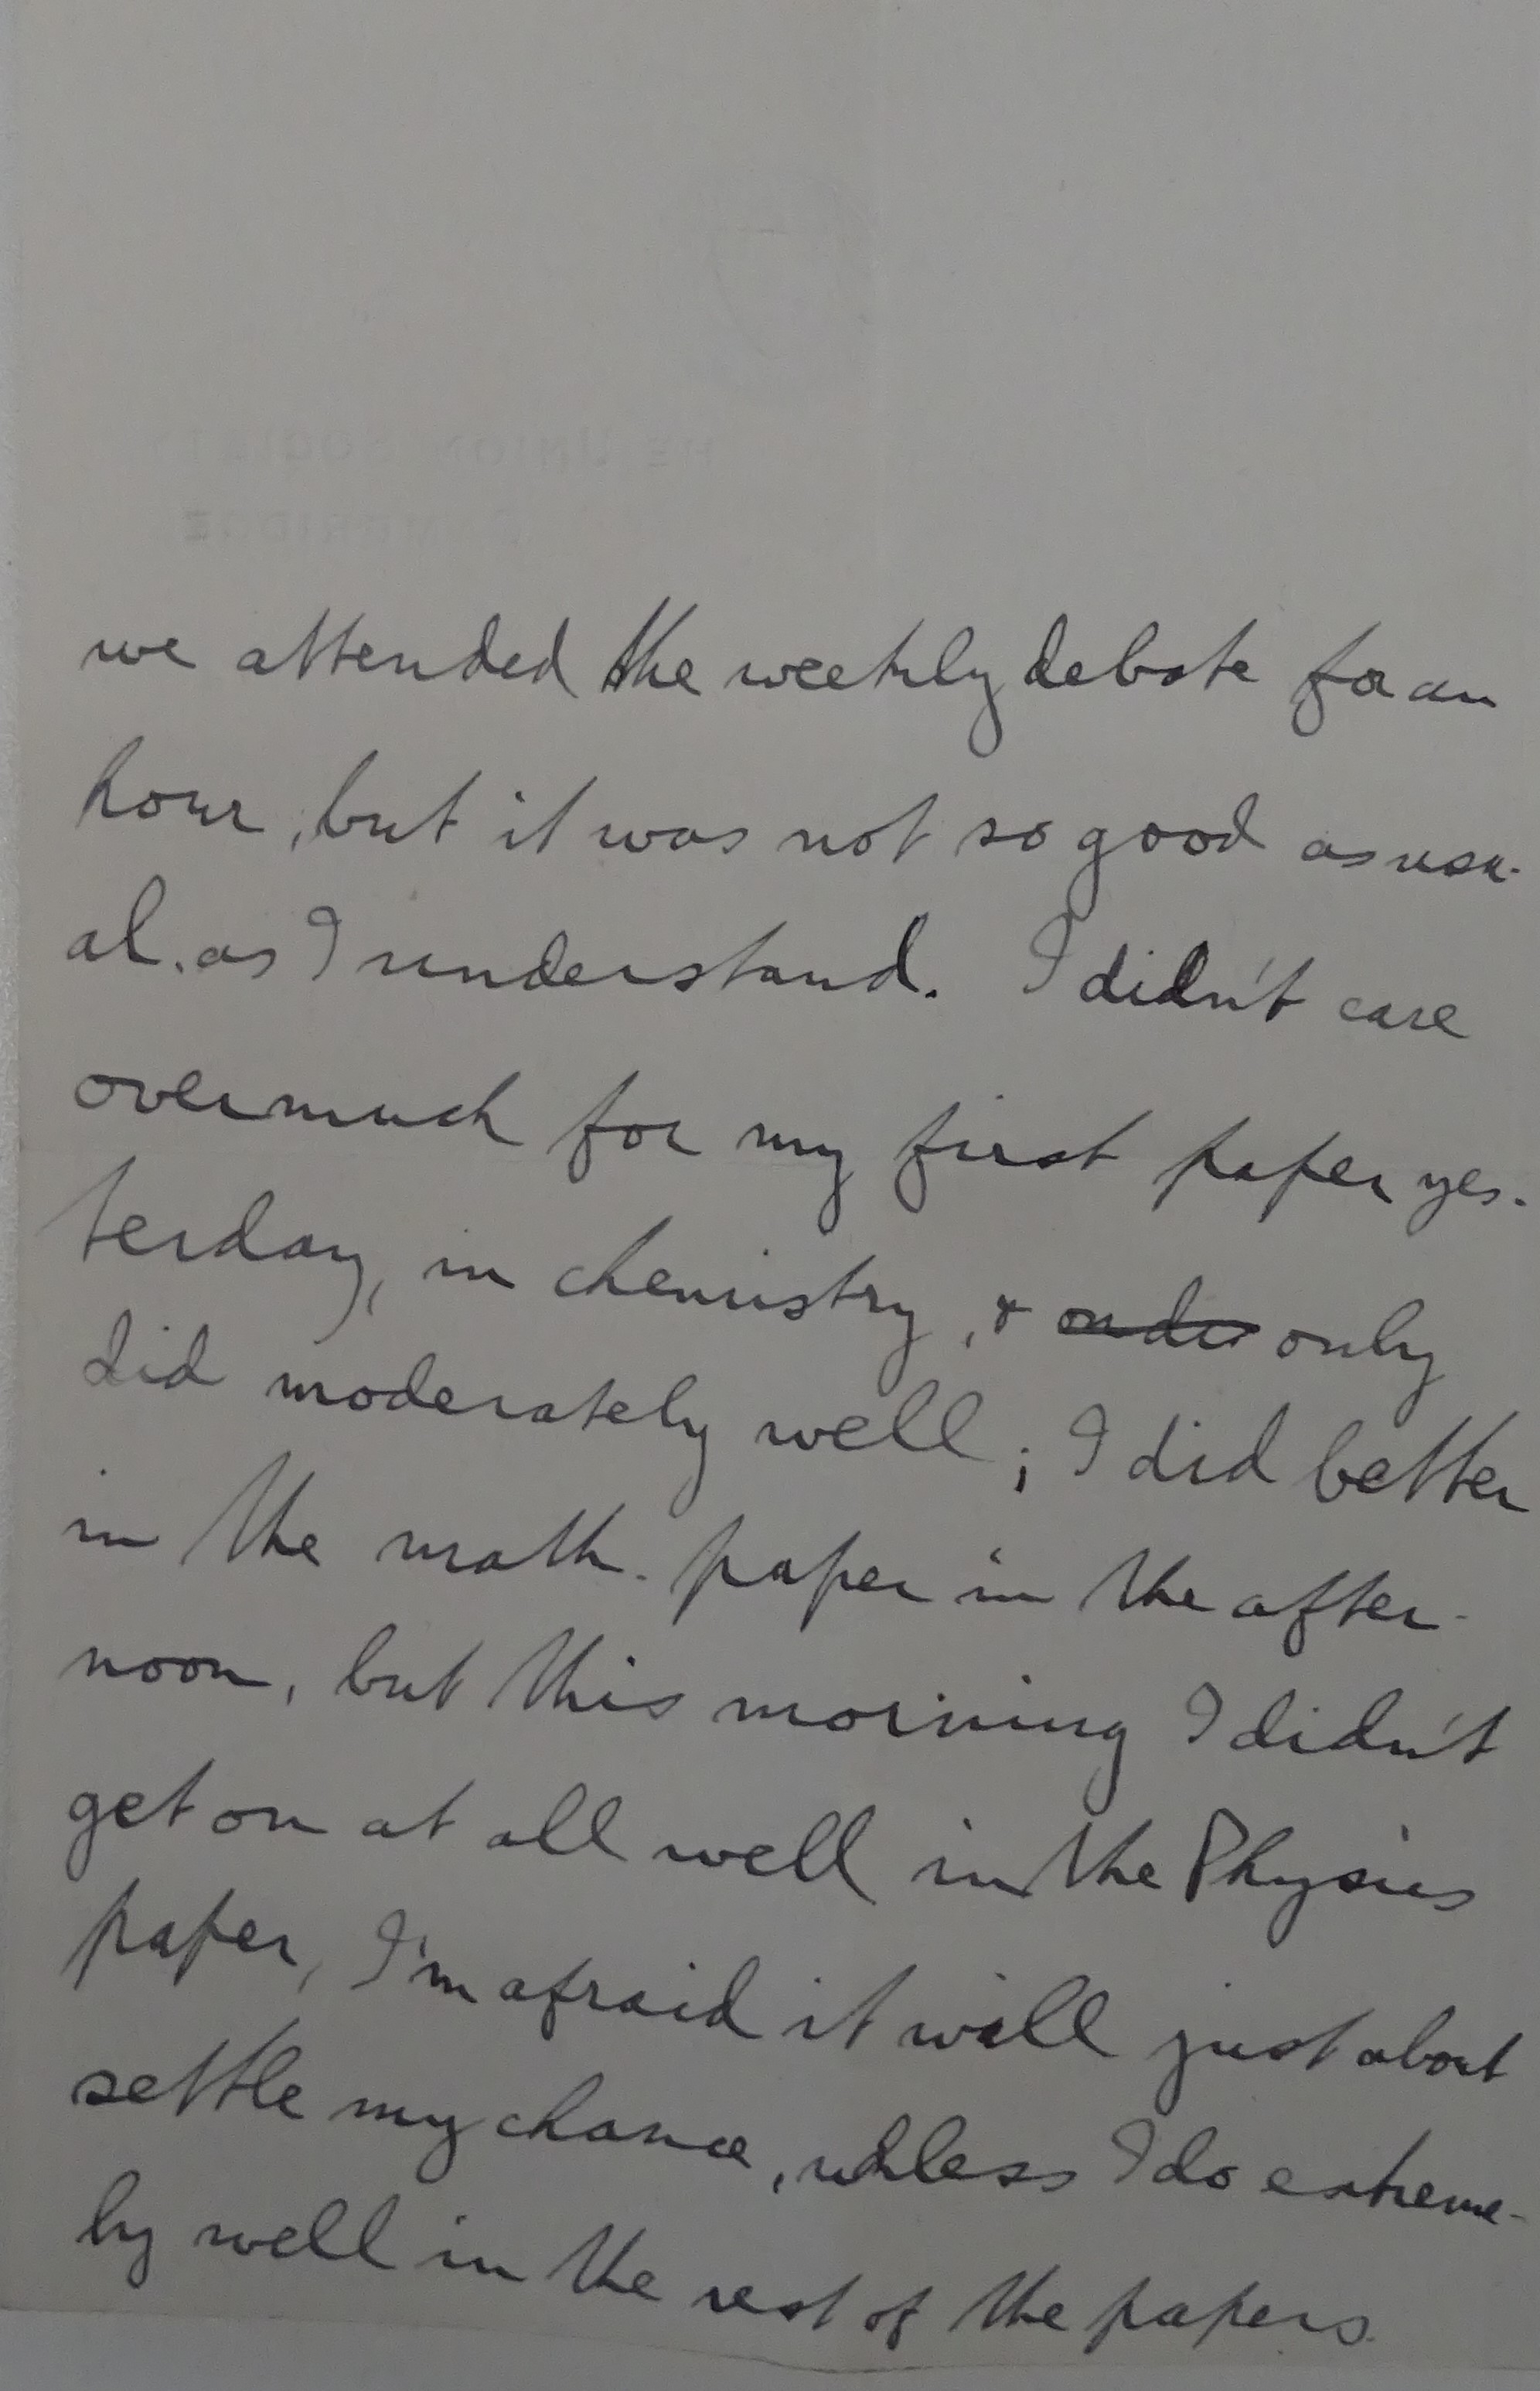 THE UNION SOCIETY
CAMBRIDGE
we attended the weekly debate for an
hour, but it was not so good as usu-
al, as I understand. I didn't care
overmuch for my first paper yes-
terday, in chemistry, & only
did moderately well; I did better
in the math. paper in the after-
noon, but this morning I didn't
get on at all well in the Physics
paper, I'm afraid it will just about
settle my chance, unless I do extreme-
ly well in the rest of the papers.